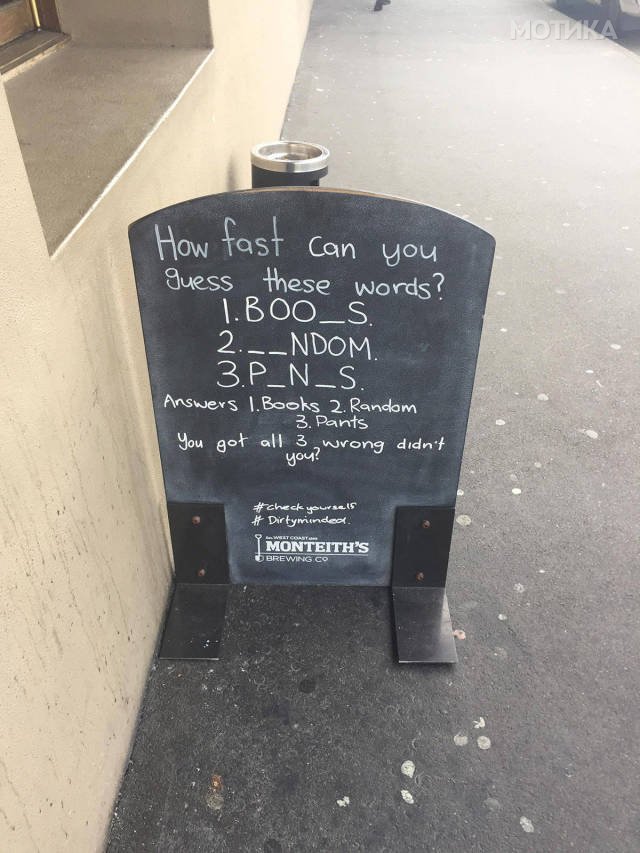 МОТИКА
How fast can you
guess these words?
1. BOO_S.
2. __NDOM.
3. P_N_S.
Answers 1. Books 2. Random
3. Pants
You got all 3 wrong didn't
you?
#checkyourself
# Dirtyminded.
WEST COAST
MONTEITH'S
BREWING CO